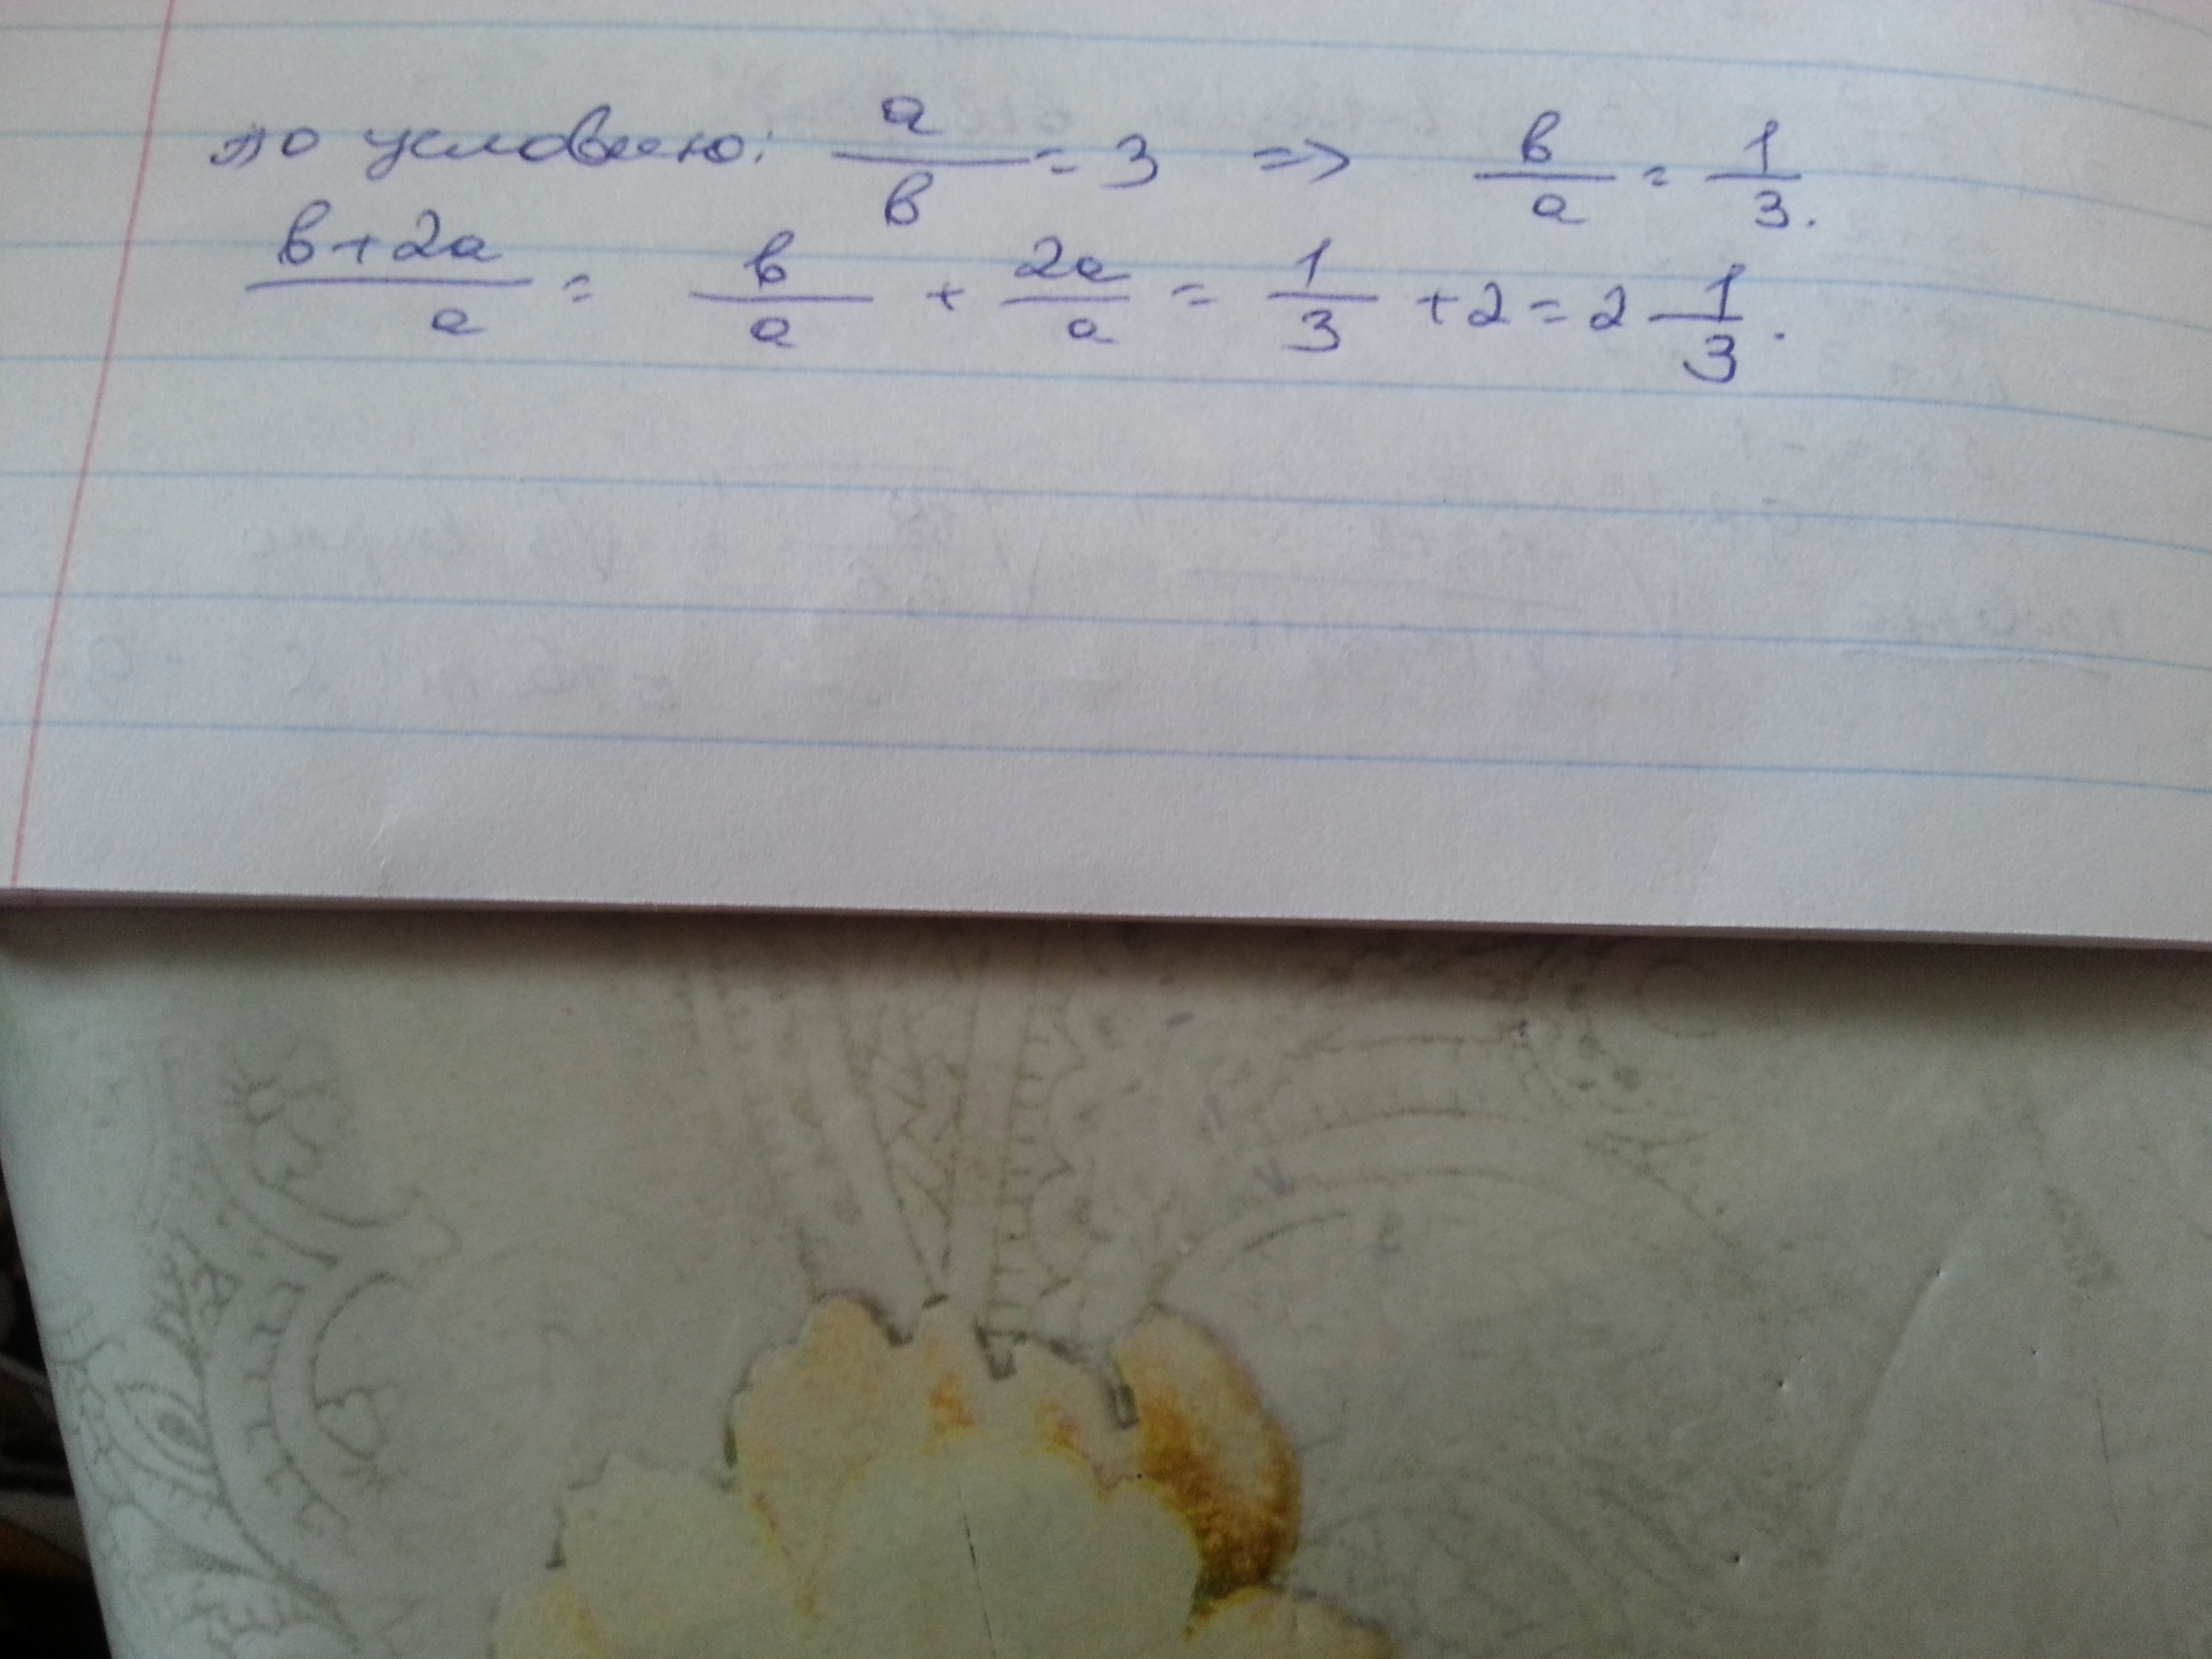 по условию: a/в = 3 => в/a = 1/3.
в+2a/a = в/a + 2a/a = 1/3 + 2 = 2 1/3.